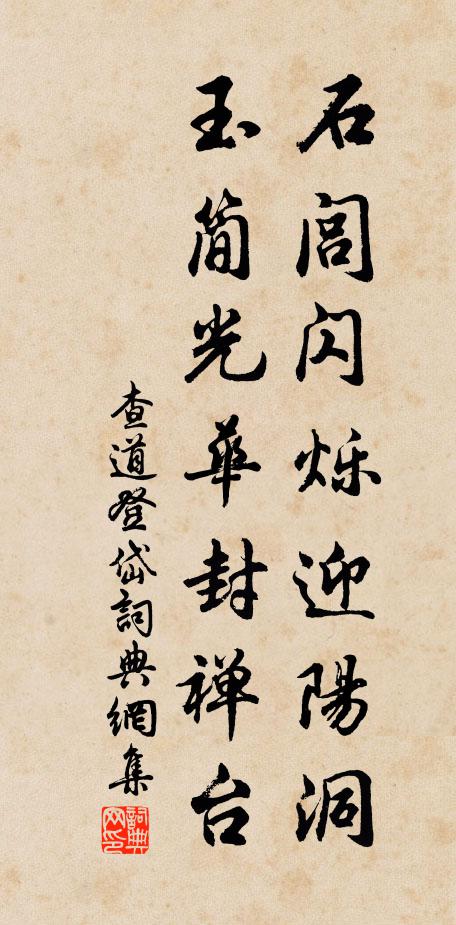 石闾闪烁迎陽洞
玉简光華封禅台
查道登岱詞典網集
詞典网印